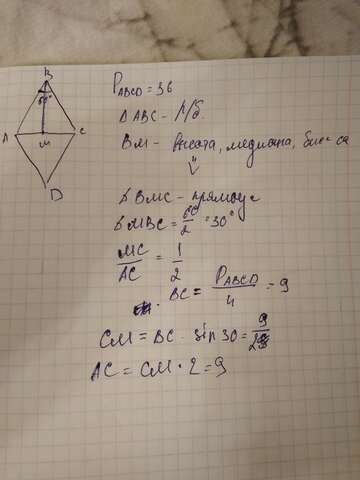 B
60°
A
M
C
D
P ABCD = 36
Δ ABC - р/б.
BM - высота, медиана, бисс са
⇓
Δ BMC - прямоуг
∠ MBC = 60/2 = 30°
MC/AC = 1/2
BC = P ABCD/4 = 9
CM = BC · sin 30 = 9/2
AC = CM · 2 = 9